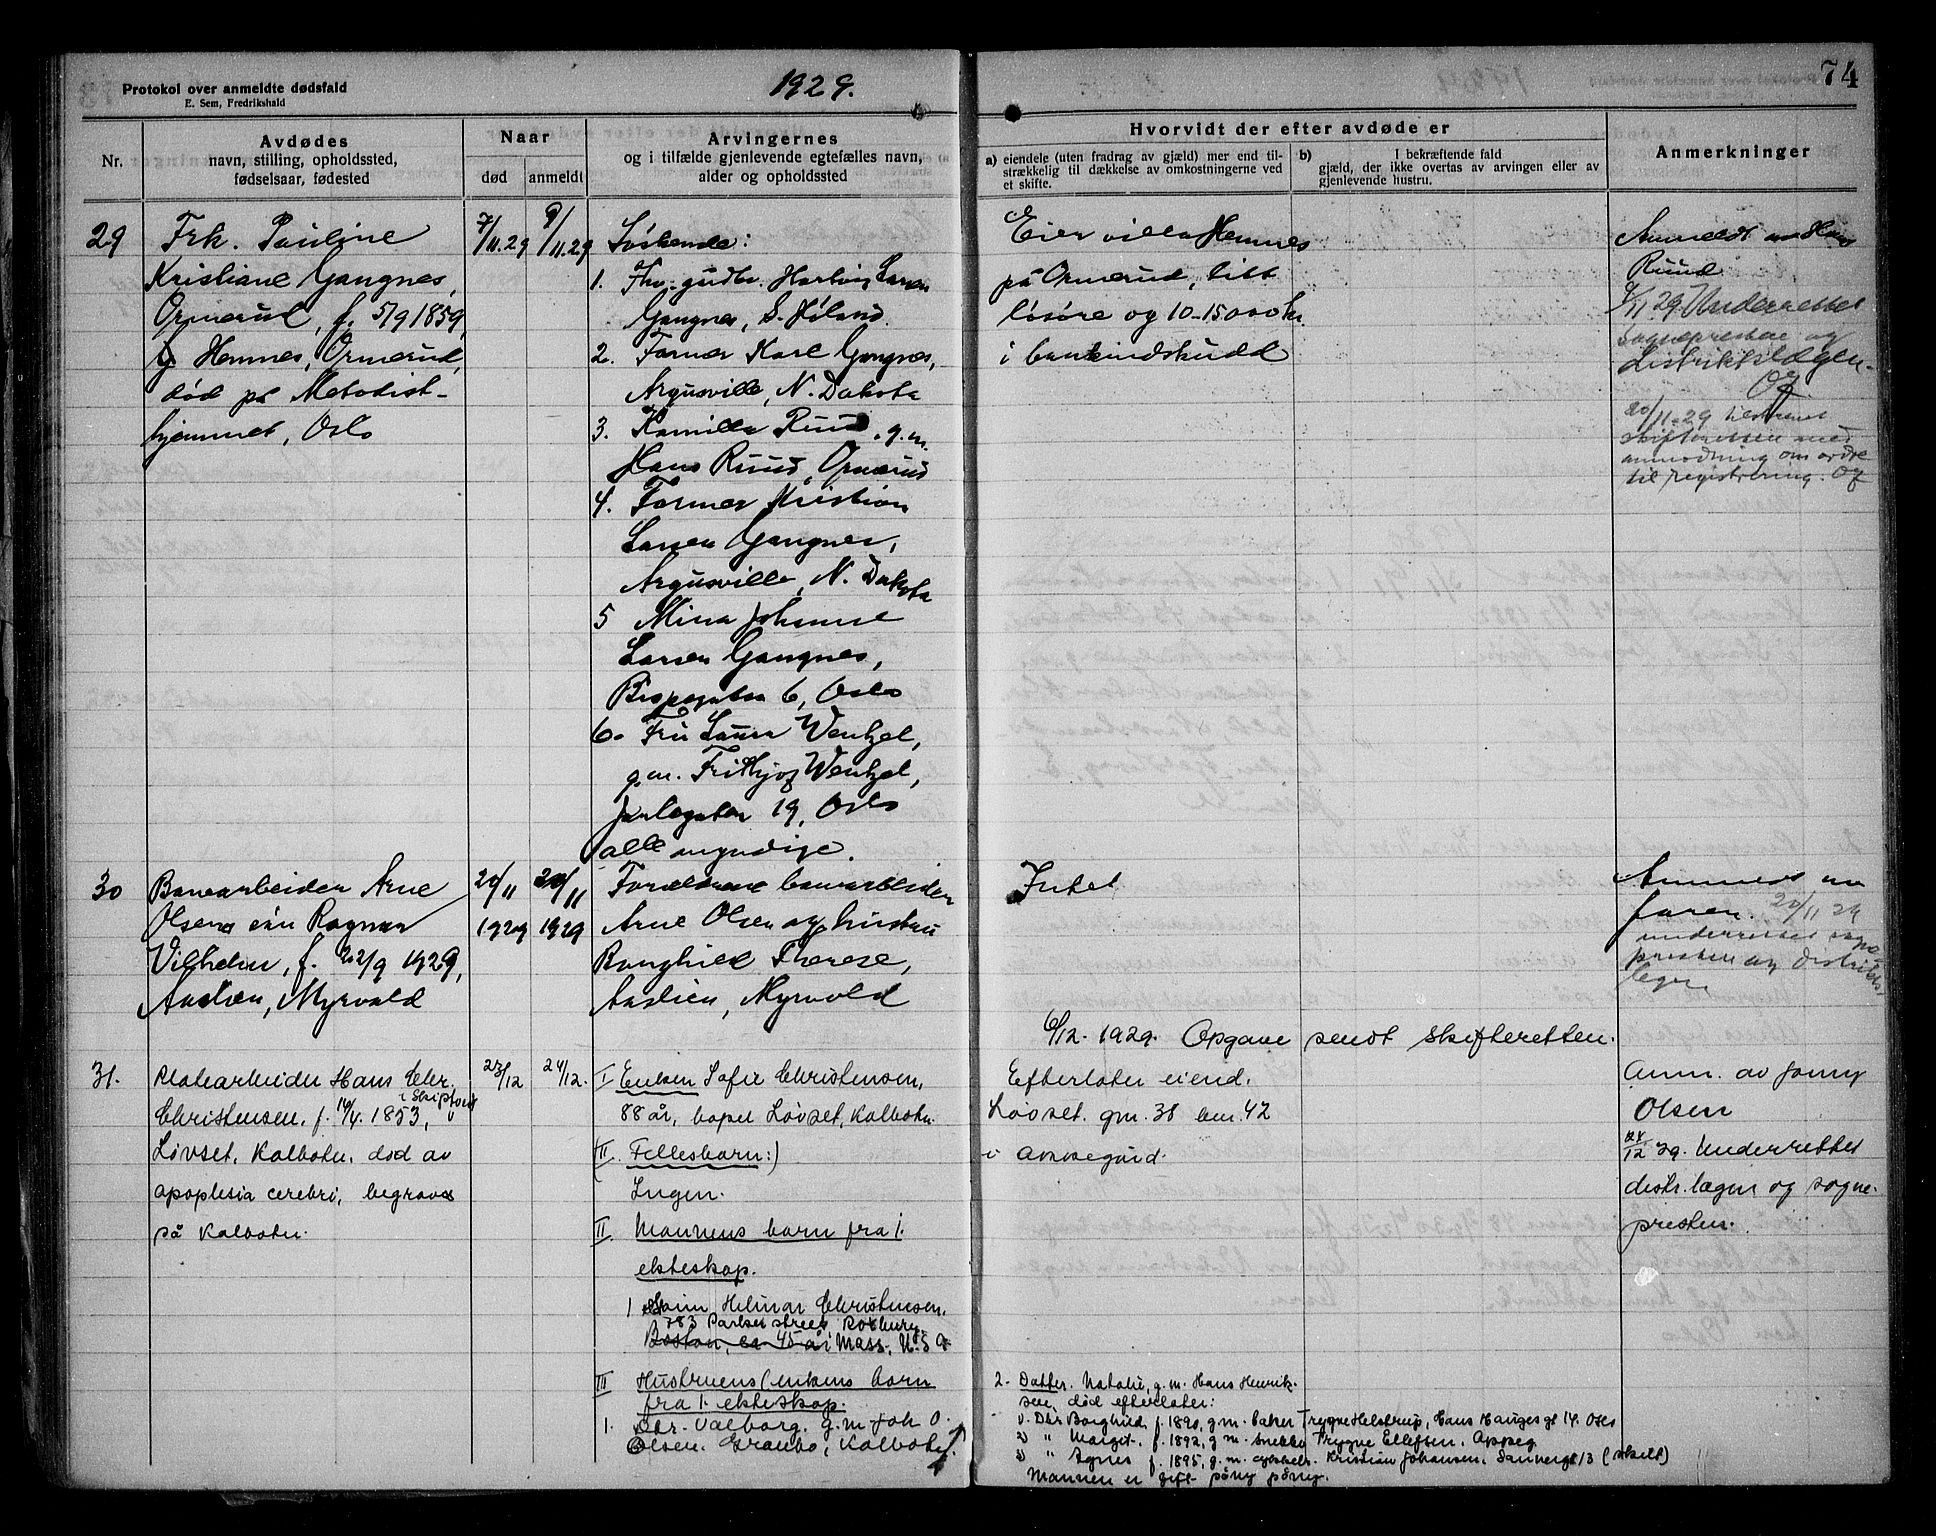 Protokol over anmeldte dødsfald
E. Sem, Fredrikshald
1929.
74
Nr.
Avdødes
navn, stilling, opholdssted,
fødselsaar, fødested
Naar
død
anmeldt
Arvingernes
og i tilfælde gjenlevende egtefælles navn,
alder og opholdssted
Hvorvidt der efter avdøde er
a) eiendele (uten fradrag av gjæld) mer end til-
strækkelig til dækkelse av omkostningerne ved
et skifte.
b) I bekræftende fald
gjæld, der ikke overtas av arvingen eller av
gjenlevende hustru.
Anmerkninger
29
Frk. Pauline
Kristiane Gangnes,
Ormerud, f. 5/9 1859,
Hemnes, Ormerud,
død på Metodist-
hjemmet, Oslo
7/11.29
9/11.29
Søskende:
1. Fhv. gudbr. Hartvig Larsen
Gangnes, S. Høland.
2. Farmer Karl Gangnes,
Argusville, N. Dakota
3. Kamilla Ruud, g.m.
Hans Ruud, Ormerud
4. Farmer Kristian
Larsen Gangnes,
Argusville, N. Dakota
5 Mina Johanne
Larsen Gangnes,
Bispegaten 6, Oslo
6. Fru Laura Wentzel,
g.m. Frithjof Wentzel,
Jarlegaten 19, Oslo
alle myndige.
Eier villa Hemnes
på Ormerud, litt
løsøre og 10-15000 kr.
i bankindskudd
Anmeldt av Hans
Ruud
9/11 29 Underrettet
sognepresten og
distriktslægen.
20/11-29 tilskrevet
skifteretten med
anmodning om ordre
til registrering. Of
30
Banearbeider Arne
Olsens søn Ragnar
Vilhelm, f. 22/9 1929,
Aaslien, Myrvold
20/11
1929
20/11
1929
Forældrene banearbeider
Arne Olsen og hustru
Ranghild Therese,
Aaslien, Myrvold
Intet
Anmeldt av
faren. 20/11 29
underrettet sogne
presten og distrikts-
legen
6/12. 1929. Opgave sendt skifteretten.
31.
Hans Chr.
i Skiptvet
Christensen, f. 1853,
Løvset, Kolbotn, død av
apoplexia cerebri, begraves
på Kolbotn.
23/12
24/12.
I Enken Sofie Christensen,
88 år, bopel Løvset, Kolbotn.
(II. Fellesbarn:)
Ingen.
II Mannens barn fra 1.
ekteskap.
1 Helmar Christensen.
783 Parker street Roxbury
Boston, ca 45 år Mass. U.S.A
III Hustruens (enkens barn
fra 1. ekteskap.
1. Dtr. Valborg, g.m. Joh O.
Olsen. Granbo, Kolbotn.
Efterlater eiend.
Løvset. gnr. 38 bnr. 42
i Oppegård.
2. Datter. Natalie, g.m. Hans Henrik-
sen, død efterlater:
1). Dtr Borghild, f. 1890, g.m. baker Trygve Helstrup, Hans Hauges gt 14. Oslo
2) " Margit. f. 1892, g m. snekker Trygve Ellefsen. Oppeg.
3) " Agnes f. 1895, g.m. Kristian Johansen. Sannergt 13 (skilt)
Mannen er gift påny påny.
Anm. av Jonny
Olsen
24/12 29. Underrettet
distr. lægen og sogne-
presten.